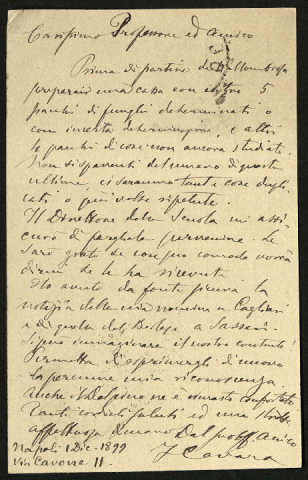 Carissimo Professore ed amico
Prima di partire da
preparai una cassa con entro 5
pacchi di funghi determinati o
con incerta determinazione, e altri
pacchi di cose non ancora studiati.
Non si spaventi del numero di queste
ultime, ci saranno tante cose dupli
cati, o più volte ripetute.
Il Direttore della Scuola mi assi
curò di fargliela pervenire. Le
sarò grato se con suo comodo vorrà
dirmi se le ha ricevute.
Ho avuto da fonte sicura la
notizia della mia nomina a Cagliari
e di quella del Berlese a Sassari.
Si può immaginare il nostro contento!
Permetta di esprimergli di nuovo
la perenne mia riconoscenza.
Anche ne è rimasta confortata.
Tanti cordiali saluti ed una stretta
affettuosa di mano Dal suo aff. amico
F Cavara
Napoli 1 Dic. 1899
Via Cavour 11.